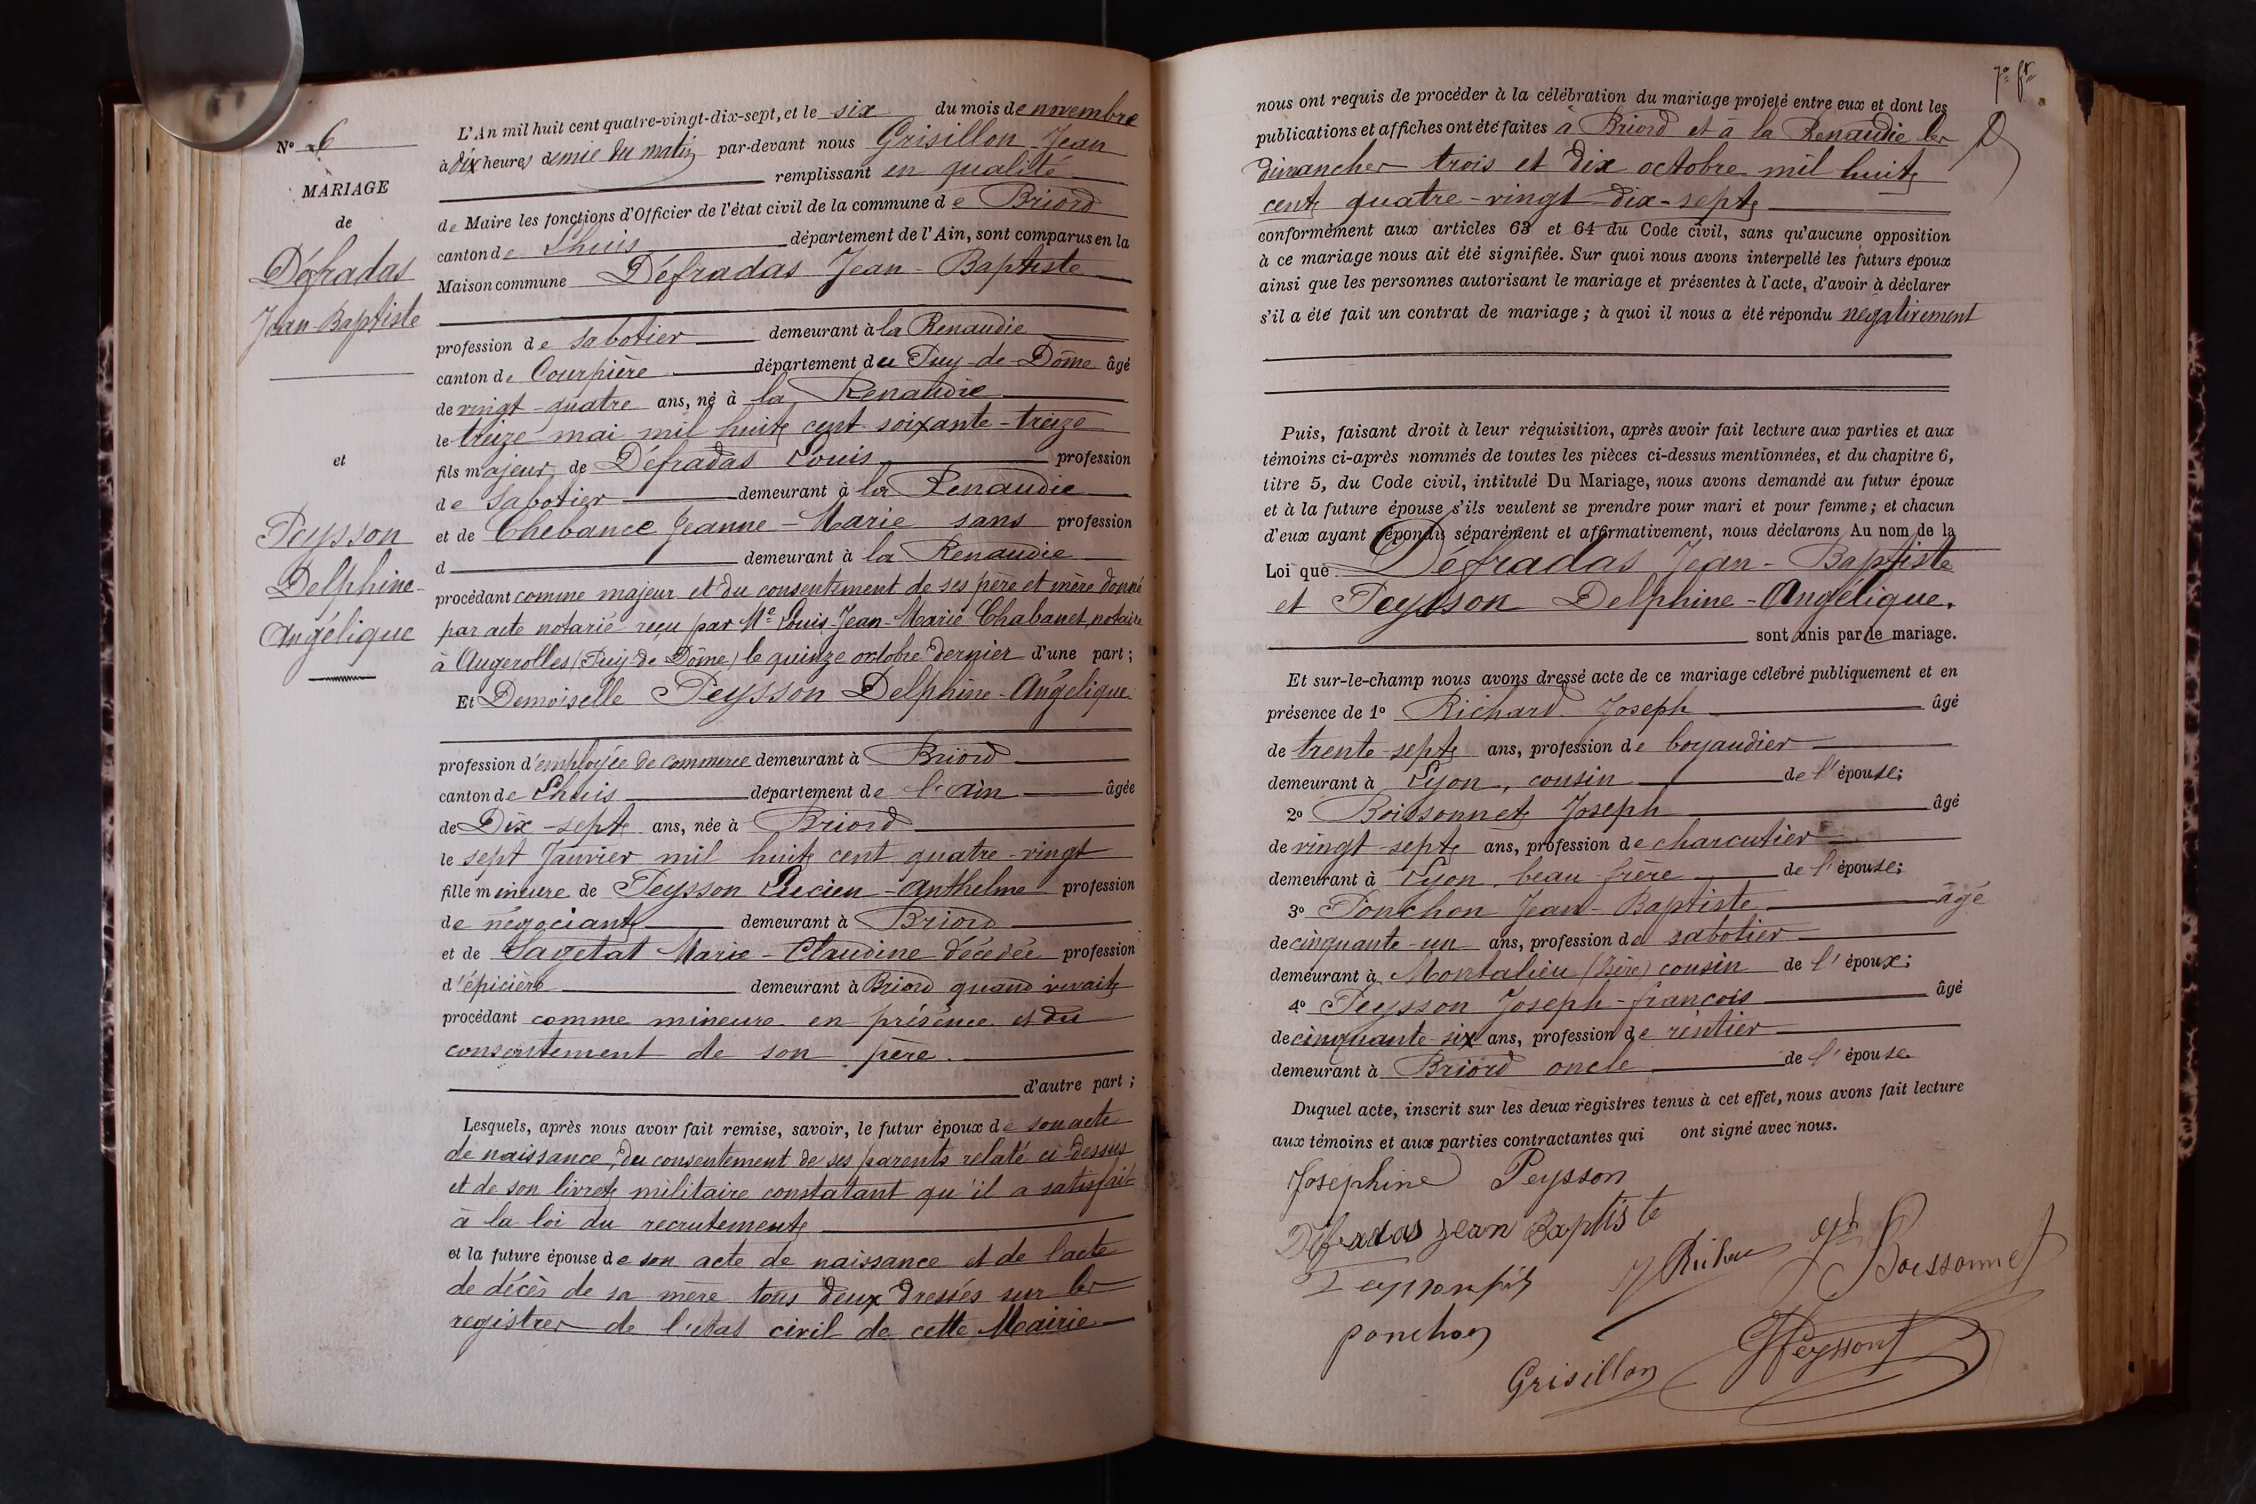 N° 6
MARIAGE
de
Défradas
Jean-Baptiste
et
Peysson
Delphine-
Angélique
L'An mil huit cent quatre-vingt-dix-sept, et le six du mois de novembre
à dix heures demie du matin par-devant nous Grisillon Jean
remplissant en qualité
de Maire les fonctions d'Officier de l'état civil de la commune de Briord
canton de Lhuis département de l'Ain, sont comparus en la
Maison commune Défradas Jean-Baptiste
profession de sabotier demeurant à la Renaudie
canton de Courpière département du Puy-de-Dôme âgé
de vingt-quatre ans, né à la Renaudie
le treize mai mil huit cent soixante-treize
fils majeur de Défradas Louis profession
de Sabotier demeurant à la Renaudie
et de Chébance Jeanne-Marie sans profession
d demeurant à la Renaudie
procédant comme majeur et du consentement de ses père et mère donné
par acte notarié reçu par Me Louis-Jean-Marie Chabanet, notaire
à Augerolles (Puy-de-Dôme) le quinze octobre dernier d'une part;
Et Demoiselle Peysson Delphine-Angélique
profession d'employée de commerce demeurant à Briord
canton de Lhuis département de l'Ain âgée
de Dix-sept ans, née à Briord
le sept Janvier mil huit cent quatre-vingt
fille mineure de Peysson Lucien-Anthelme profession
de négociant demeurant à Briord
et de Sagetat Marie-Claudine décédée profession
d'épicière demeurant à Briord quand vivait
procédant comme mineure en présence et du
consentement de son père.
d'autre part;
Lesquels, après nous avoir fait remise, savoir, le futur époux de son acte
de naissance, du consentement de ses parents relaté ci-dessus
et de son livret militaire constatant qu'il a satisfait
à la loi du recrutement
et la future épouse de son acte de naissance et de l'acte
de décès de sa mère tous deux dressés sur les
registres de l'état civil de cette Mairie
nous ont requis de procéder à la célébration du mariage projeté entre eux et dont les
publications et affiches ont été faites à Briord et à la Renaudie les
dimanches trois et dix octobre mil huit
cent quatre-vingt-dix-sept
conformément aux articles 63 et 64 du Code civil, sans qu'aucune opposition
à ce mariage nous ait été signifiée. Sur quoi nous avons interpellé les futurs époux
ainsi que les personnes autorisant le mariage et présentes à l'acte, d'avoir à déclarer
s'il a été fait un contrat de mariage; à quoi il nous a été répondu négativement
Puis, faisant droit à leur réquisition, après avoir fait lecture aux parties et aux
témoins ci-après nommés de toutes les pièces ci-dessus mentionnées, et du chapitre 6,
titre 5, du Code civil, intitulé Du Mariage, nous avons demandé au futur époux
et à la future épouse s'ils veulent se prendre pour mari et pour femme; et chacun
d'eux ayant répondu séparément et affirmativement, nous déclarons Au nom de la
Loi que Défradas Jean-Baptiste
et Peysson Delphine-Angélique.
sont unis par le mariage.
Et sur-le-champ nous avons dressé acte de ce mariage célébré publiquement et en
présence de 1° Richard Joseph âgé
de trente-sept ans, profession de boyaudier
demeurant à Lyon, cousin de l'épouse;
2° Boissonnet Joseph âgé
de vingt-sept ans, profession de charcutier
demeurant à Lyon, beau-frère de l'épouse;
3° Ponchon Jean-Baptiste âgé
de cinquante-un ans, profession de sabotier
demeurant à Montalieu (Isère) cousin de l'époux;
4° Peysson Joseph-françois âgé
de cinquante-six ans, profession de rentier
demeurant à Briord oncle de l'épouse
Duquel acte, inscrit sur les deux registres tenus à cet effet, nous avons fait lecture
aux témoins et aux parties contractantes qui ont signé avec nous.
Joséphine Peysson
Défradas Jean Baptiste
Peysson fils
J Boissonnet
ponchon
JPeysson
Grisillon